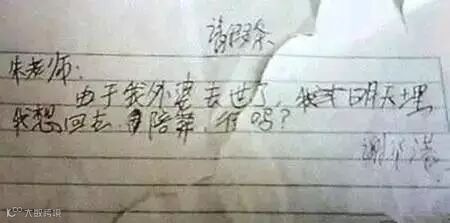 请假条
朱老师:
由于我外婆去世了,我 明天埋
我想回去 陪葬,行吗?
谢
大数跨境